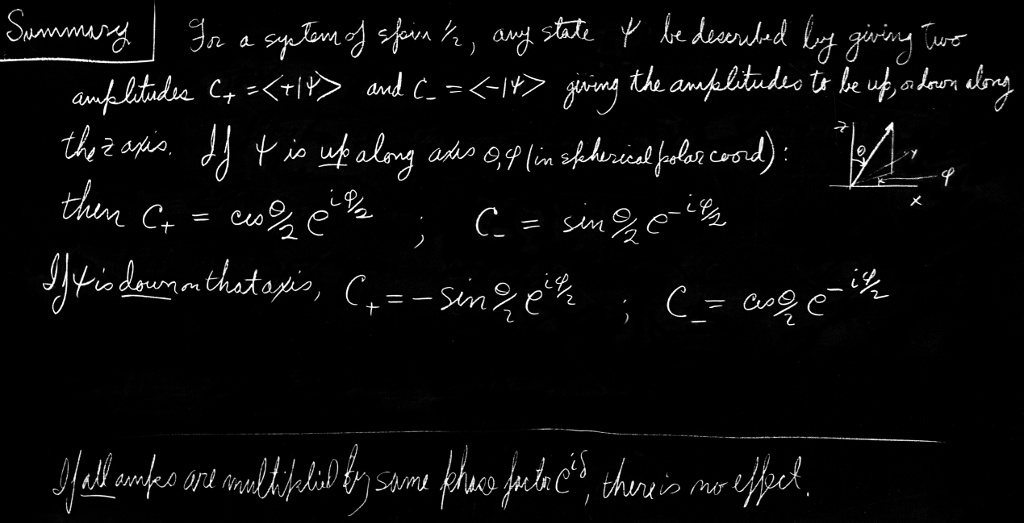 Summary
For a system of spin 1/2, any state ψ be described by giving two
amplitudes C₊ = <+|ψ> and C₋ = <-|ψ> giving the amplitudes to be up, or down along
the z axis. If ψ is up along axis θ,φ (in spherical polar coord):
z θ y φ x
then C₊ = cos θ/2 e^{iφ/2} ; C₋ = sin θ/2 e^{-iφ/2}
If ψ is down on that axis, C₊ = - sin θ/2 e^{iφ/2} ; C₋ = cos θ/2 e^{-iφ/2}
If all amps are multiplied by same phase factor e^{iδ}, there is no effect.